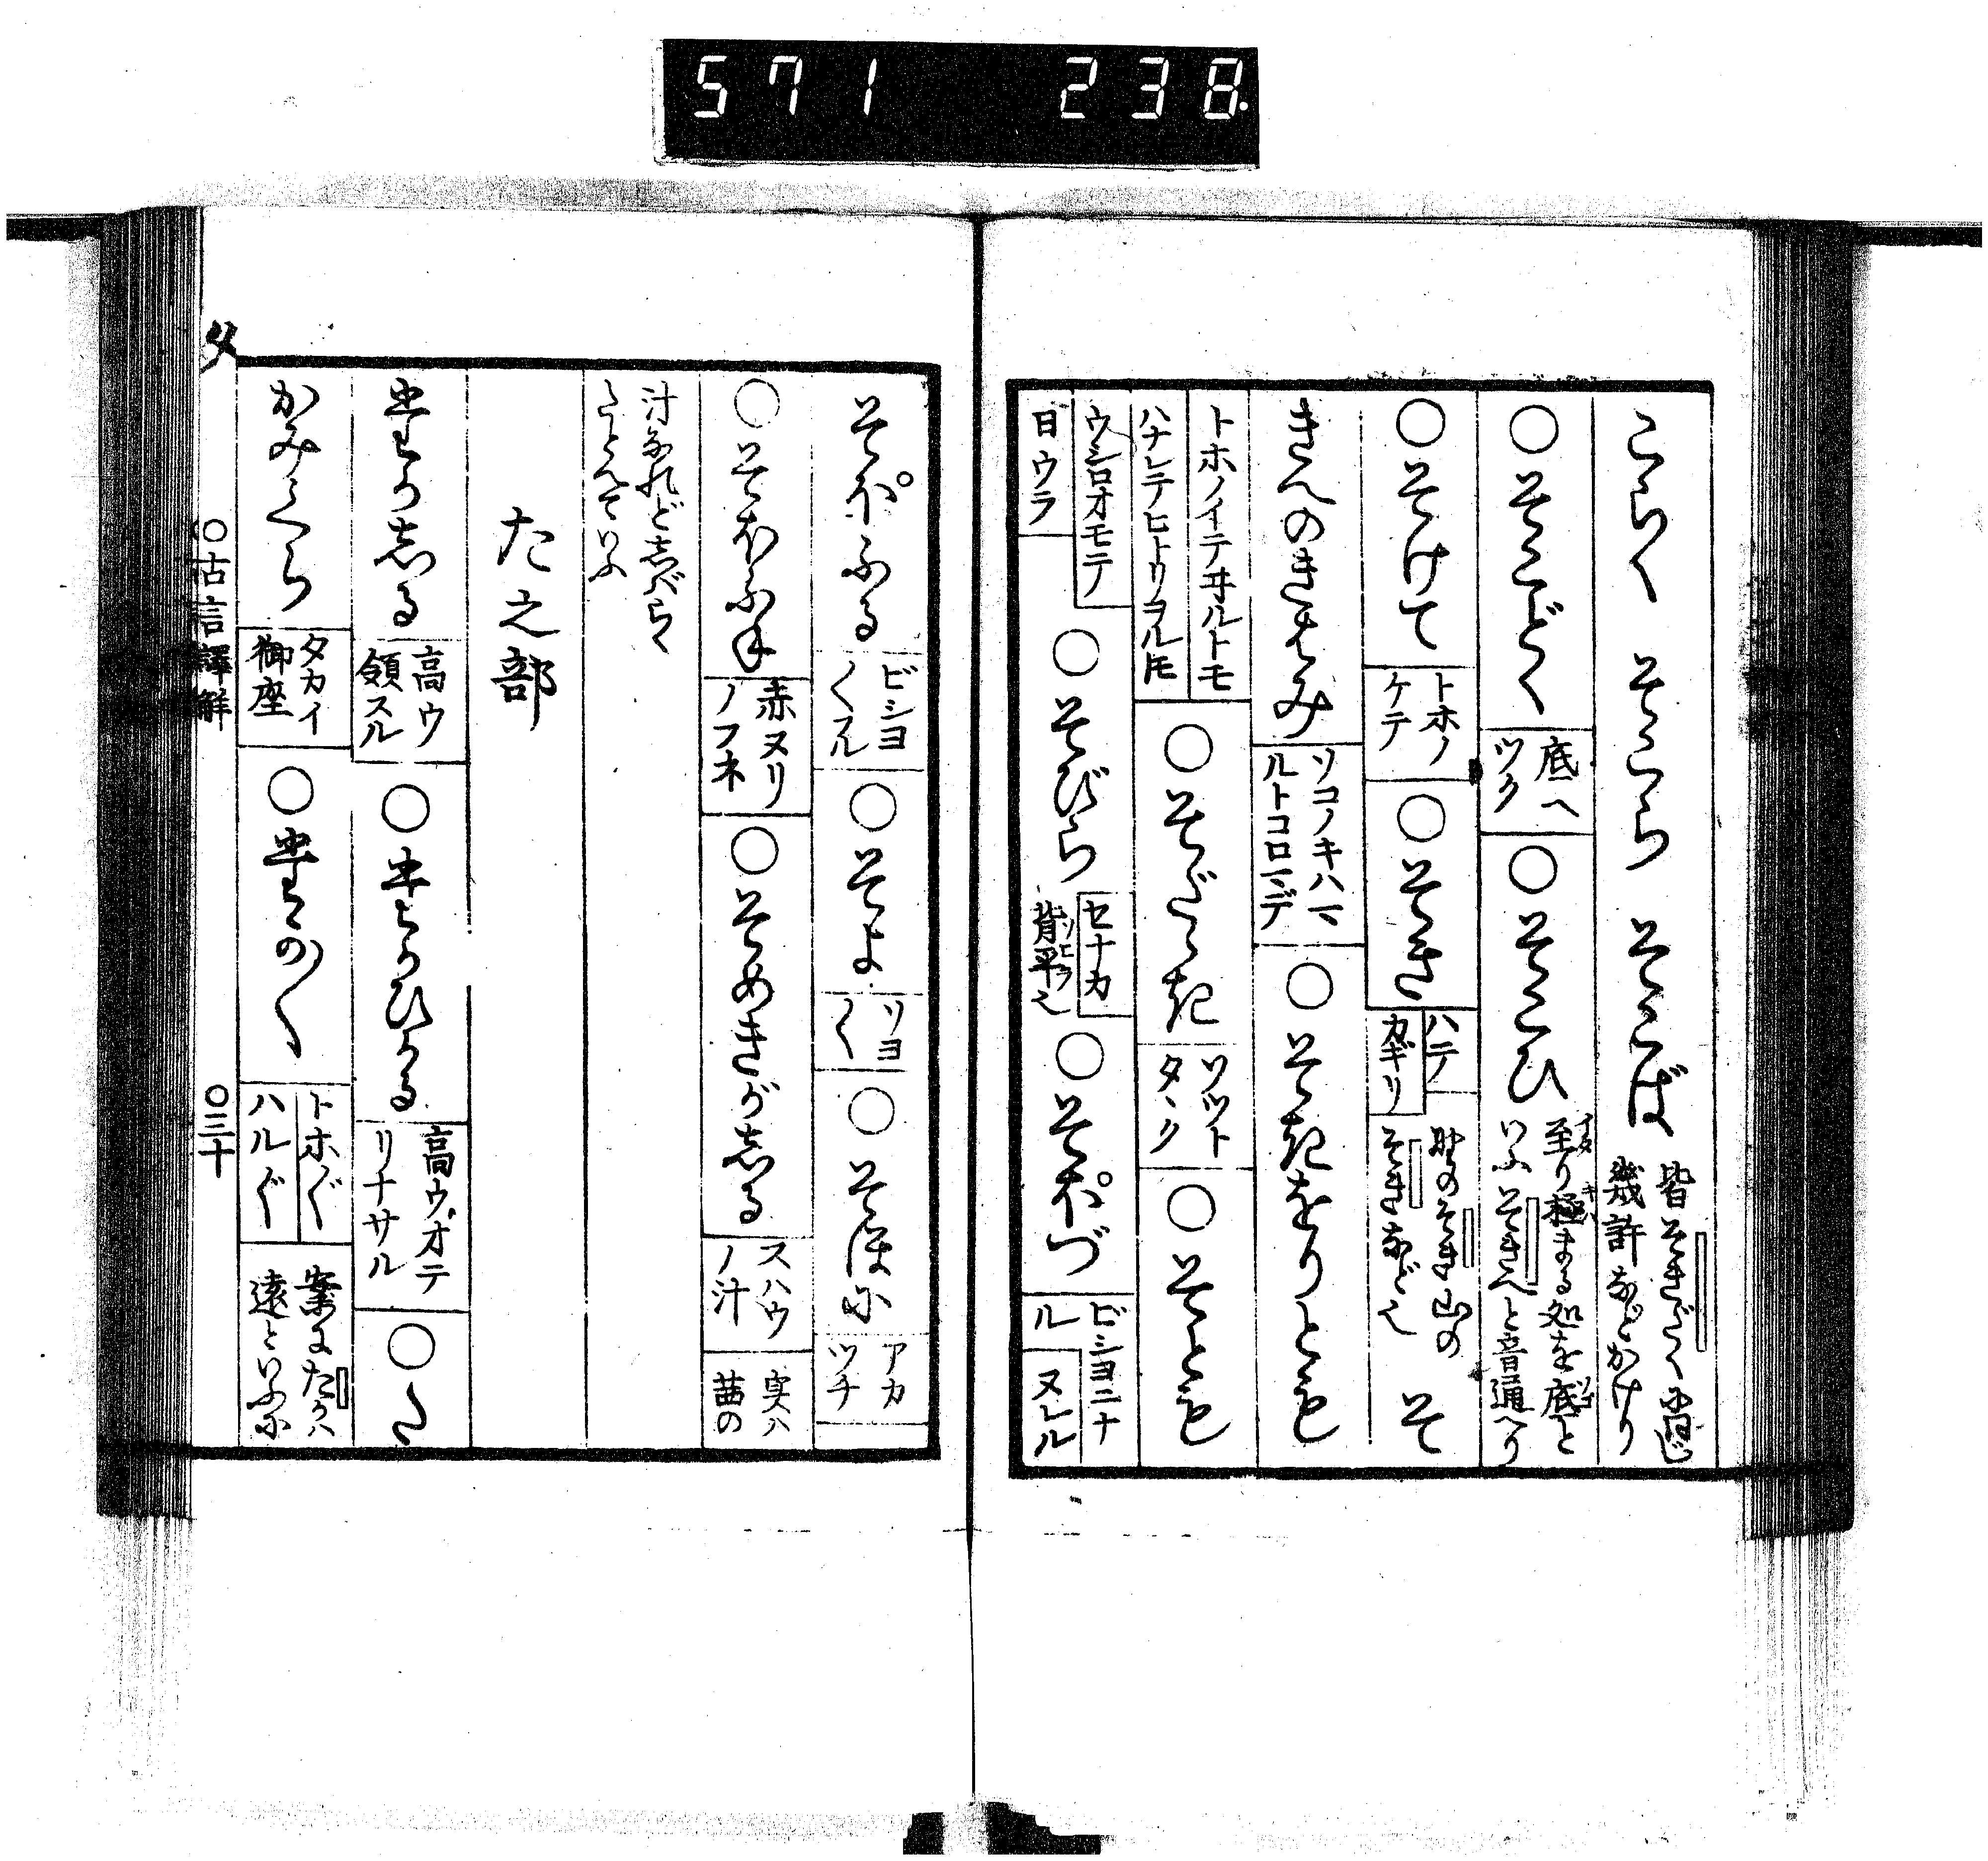 571 238.
こらく そこら そこば 皆そきだく に同じ
幾許などかけり
○そこどく 底ヘ
ツク ○そこひ 至り極まる処を底と
いふそきへと音通へり
○そけて トホノ
ケテ ○そき ハテ
カギリ 野のそき山の
そきなど也 そ
きへのきはみ ソコノキハマ
ルトコロマデ ○そきをりとも
トホノイテヰルトモ
ハナレテヒトリヲルトモ ○そだゝき ソツト
タヽク ○そとも
ウシロオモテ
日ウラ ○そびら セナカ
背平也 ソビラ ○そぼづ ビシヨニナ
ル ヌレル
そぼふる ビシヨ
〳〵フル ○そよ ソヨ
〳〵 ○そほに アカ
ツチ
○そほふね 赤ヌリ
ノフネ ○そめきがしる スハウ
ノ汁 実ハ
茜の
汁なれどしばらく
たとへていふ
た之部
たかしる 高ウ
領スル ○たかひかる 高ウオテ
リナサル ○た
かみくら タカイ
御座 ○たか〳〵 トホ〴〵
ハル〴〵 案にたかハ
遠といふに
○古言譯解 ○三十